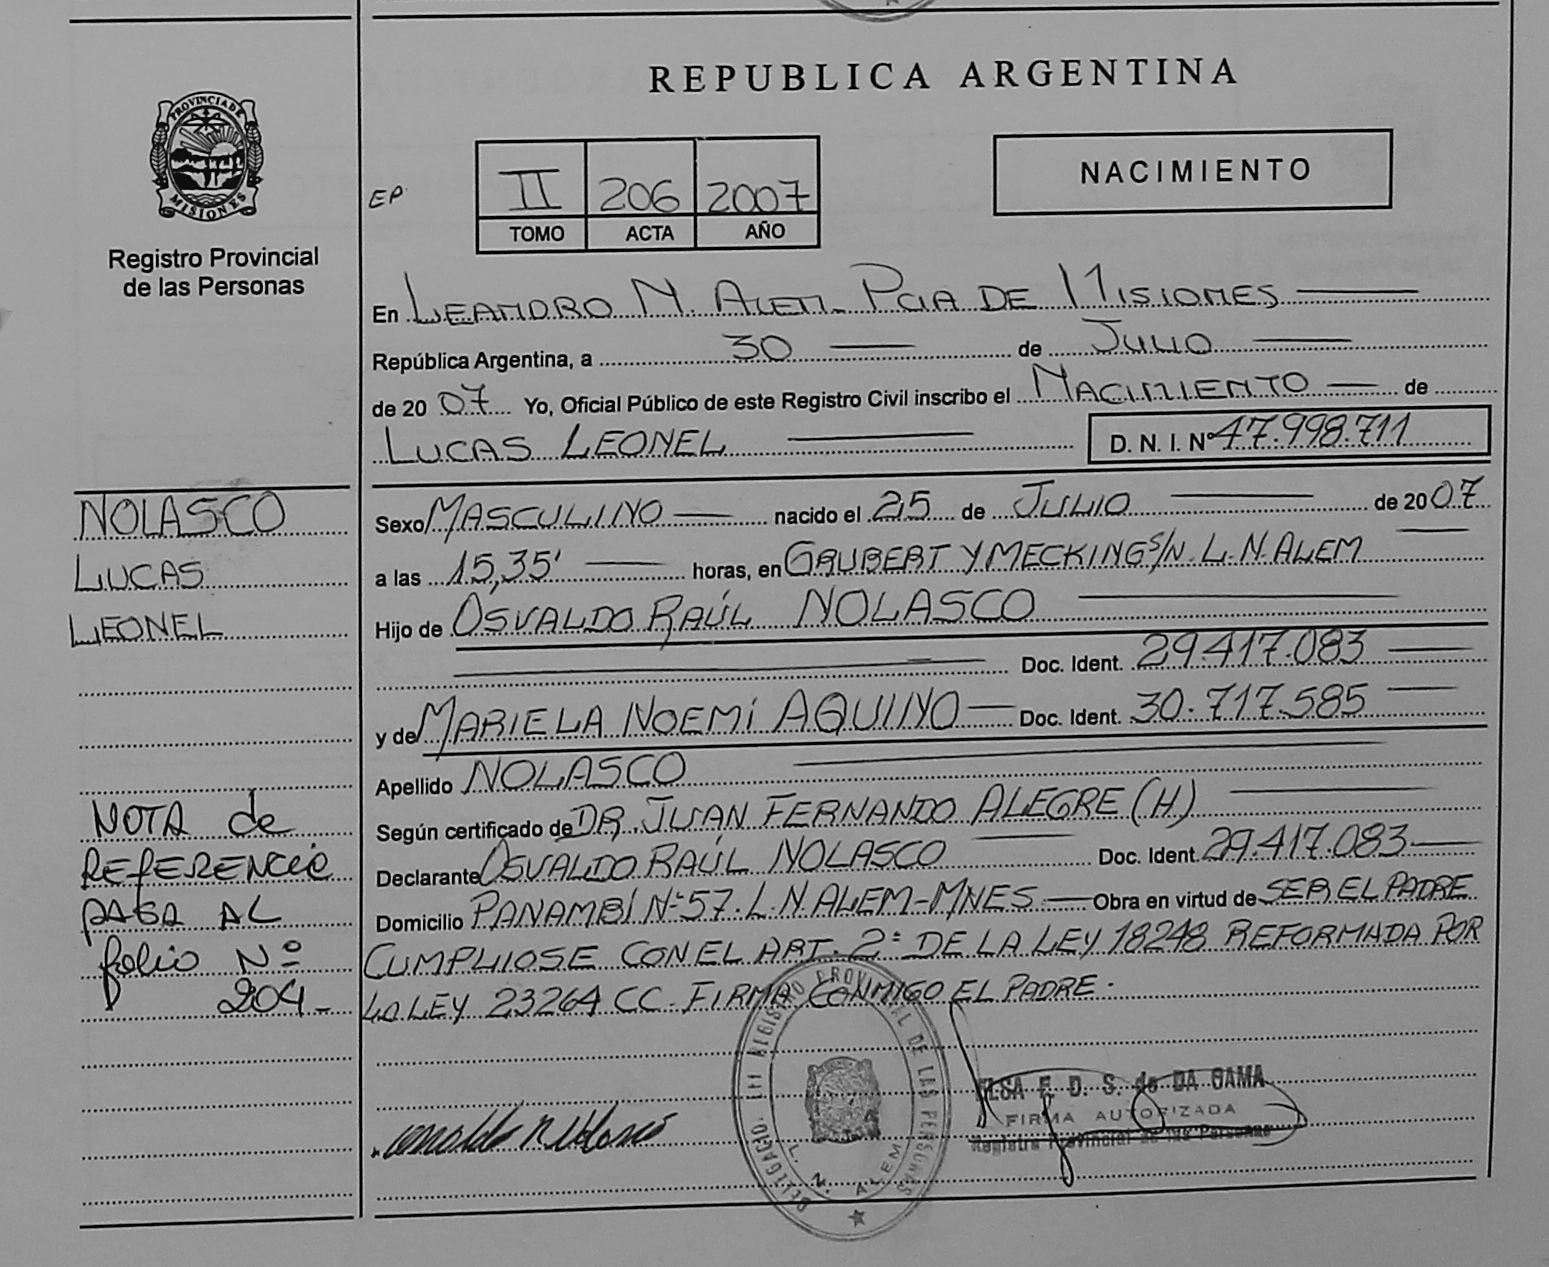 REPUBLICA ARGENTINA
PROVINCIA DE
MISIONES
Registro Provincial
de las Personas
NACIMIENTO
EP
II 206 2007
TOMO ACTA AÑO
En LEANDRO N. ALEM - PCIA DE MISIONES
República Argentina, a 30 de JULIO
de 20 07 Yo, Oficial Público de este Registro Civil inscribo el NACIMIENTO de
LUCAS LEONEL D. N. I. Nº 47.998.711
NOLASCO
LUCAS
LEONEL
Sexo MASCULINO nacido el 25 de JULIO de 20 07
a las 15,35' horas, en GRUBERT Y MECKING S/N. L.N. ALEM
Hijo de OSVALDO RAÚL NOLASCO
Doc. Ident. 29.417.083
y de MARIELA NOEMÍ AQUINO Doc. Ident. 30.717.585
Apellido NOLASCO
Según certificado de DR. JUAN FERNANDO ALEGRE (H)
Declarante OSVALDO RAÚL NOLASCO Doc. Ident. 29.417.083
Domicilio PANAMBÍ Nº 57. L.N. ALEM - MNES Obra en virtud de SER EL PADRE
CUMPLIOSE CON EL ART. 2º DE LA LEY 18248 REFORMADA POR
LA LEY 23264 CC. FIRMA CONMIGO EL PADRE.
NOTA de
REFERENCIA
PASA AL
folio Nº
204-
REGISTRO PROVINCIAL DE LAS PERSONAS
L. N. ALEM
ELSA F. D. S. de DA GAMA
FIRMA AUTORIZADA
Registro Provincial de las Personas